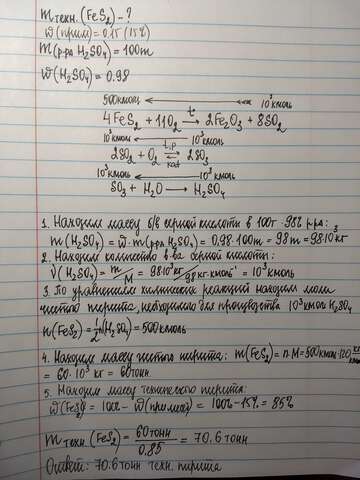 m техн. (FeS₂) - ?
ω(прим) = 0.15 (15%)
m(р-ра H₂SO₄) = 100т
ω(H₂SO₄) = 0.98
500кмоль ⟵ 10³кмоль
4FeS₂ + 11O₂ →ᵗ 2Fe₂O₃ + 8SO₂
10³кмоль ⟵ 10³кмоль
2SO₂ + O₂ ⇄ 2SO₃ t,p kat
10³кмоль ⟵ 10³кмоль
SO₃ + H₂O ⟶ H₂SO₄
1. Находим массу б/в серной кислоты в 100т 98% р-ра:
m(H₂SO₄) = ω · m(р-ра H₂SO₄) = 0.98·100т = 98т = 98·10³кг
2. Находим количество в-ва серной кислоты:
ν(H₂SO₄) = m/M = 98·10³кг/98кг·кмоль⁻¹ = 10³кмоль
3. По уравнениям химических реакций находим моли
чистого пирита, необходимого для производства 10³кмоль H₂SO₄
n(FeS₂) = ½n(H₂SO₄) = 500кмоль
4. Находим массу чистого пирита: m(FeS₂) = n·M = 500кмоль·120 кг/кмоль
= 60·10³ кг = 60тонн.
5. Находим массу технического пирита:
ω(FeS₂) = 100% - ω(примесей) = 100% - 15% = 85%
m техн. (FeS₂) = 60тонн/0.85 = 70.6тонн
Ответ: 70.6тонн техн. пирита